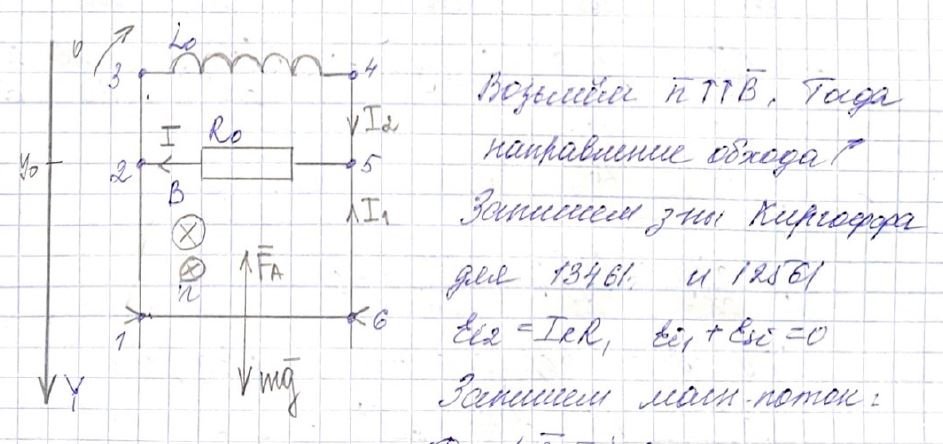 0
L₀
3
4
I₂
I
R₀
y₀
2
5
B
I₁
F̄A
n
1
6
mḡ
Y
Возьмём n̄ ↑↑ B̄. Тогда
направление обхода ↱
Запишем з-ны Киргофора
для 13461. и 12561
Ei2 = IRR, Ei1 + Esi = 0
Запишем магн. поток: